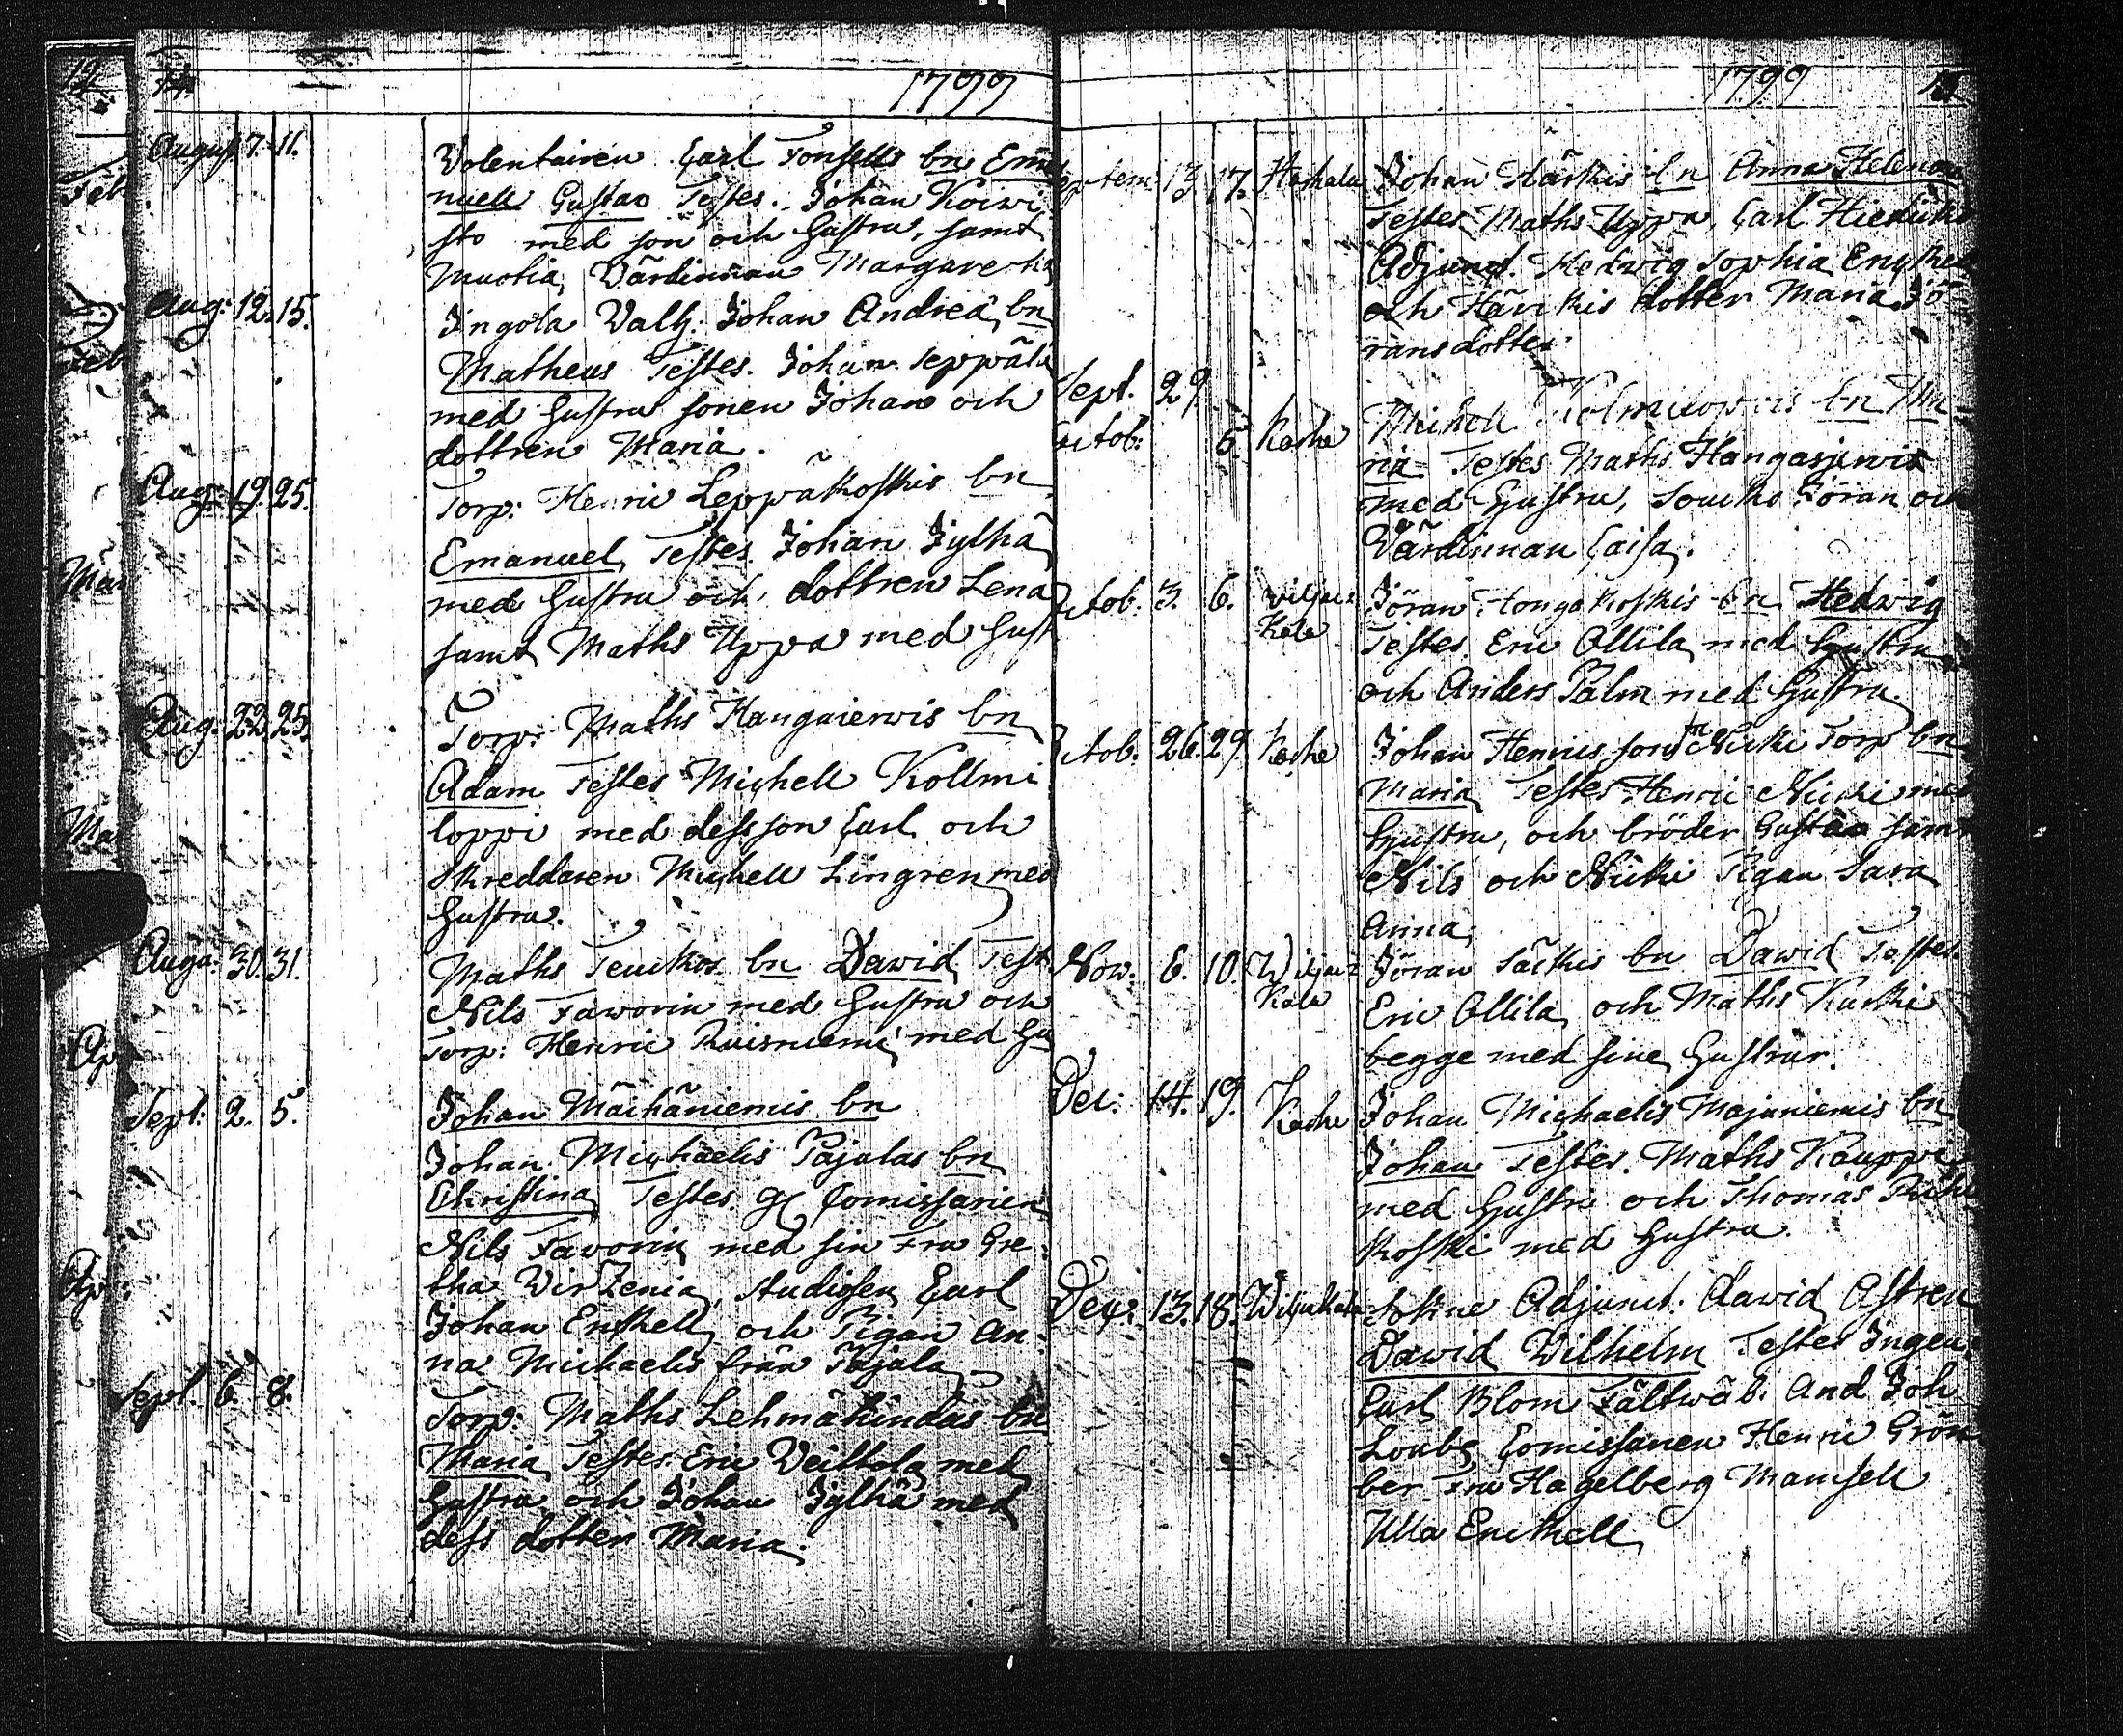 14. 1799
August 7. 11. Volentairen Carl Fonsells bn Ema
nuell Gustav Testes. Johan Koivi
sto med son och hustru, samt
Muotia, Värdinnan Margaretha
Aug: 12. 15. Ingola Valb: Johan Andreæ bn
Matheus Testes. Johan Seppälä
med hustru sonen Johan och
dottren Maria.
Aug: 19. 25. Torp: Henric Leppäkoskis bn
Emanuel, Testes Johan Jylhä
med hustru och dottren Lena
samt Maths Uppa med hust
Aug. 22. 25. Torp: Maths Hangaierwis bn
Adam Testes Michell Kollmi
loppi med dess son Carl och
Skreddaren Michell Lingren med
hustru.
Aug: 30. 31. Maths Teuckos bn David Test
Nils Faworin med hustru och
Torp: Henric Ruisniemi med hu
Sept: 2. 5. Johan Mäihäniemis bn
Johan Michaelis Pajulas bn
Christina Testes Comissarien
Nils Faworin med sin Fru Gre-
tha Wirzenia, Studiosen Carl
Johan Enckell och Pigan An-
na Michaelis från Pajula
Sept. 6. 8. Torp: Maths Lehmähindas bn
Maria Testes Eric Veittola med
hustru och Johan Jylhä med
dess dotter Maria.
1799 15
Septem: 13 17. Haskala Johan Härkis bn Anna Helena
Testes Maths Uppa, Carl
Adjunct. Hedwig Sophia
och Härckis dotter Maria Jö-
ransdotter
Sept. 29 Octob: 6. Koske Michell Kolmilowis bn Ma-
ria Testes Maths Hangasjerwis
med hustru, Jöran och
Värdinnan Caisa.
Octob. 3. 6. Viljac-
Kala Jöran Hongakoskis bn Hedwig
Testes Eric Ollila med hustru
och Anders Palm med hustru.
Octob. 26. 29. Koske Johan Henrics son Nicki Torp bn
Maria Testes Henric Nicki med
hustru, och bröder Gustav samt
Nils och Nicki Pigan Sara
Anna.
Nov: 6. 10. Wiljac-
Kala Jöran Säckis bn David Testes.
Eric Ollila och Maths Kaski
begge med sine hustrur.
Dec: 14. 19. Koske Johan Michaelis Majaniemis bn
Johan Testes. Maths Kauppi
med hustru och Thomas
koski med hustru.
Dec: 13. 18. Wiljackala Adjunct. David Astren
David Wilhelm Testes Ingen.
Carl Blom Fältwäb. And Joh
Comissarien Henric Grön
ber Fru Hagelberg Mamsell
Ulla Enckell